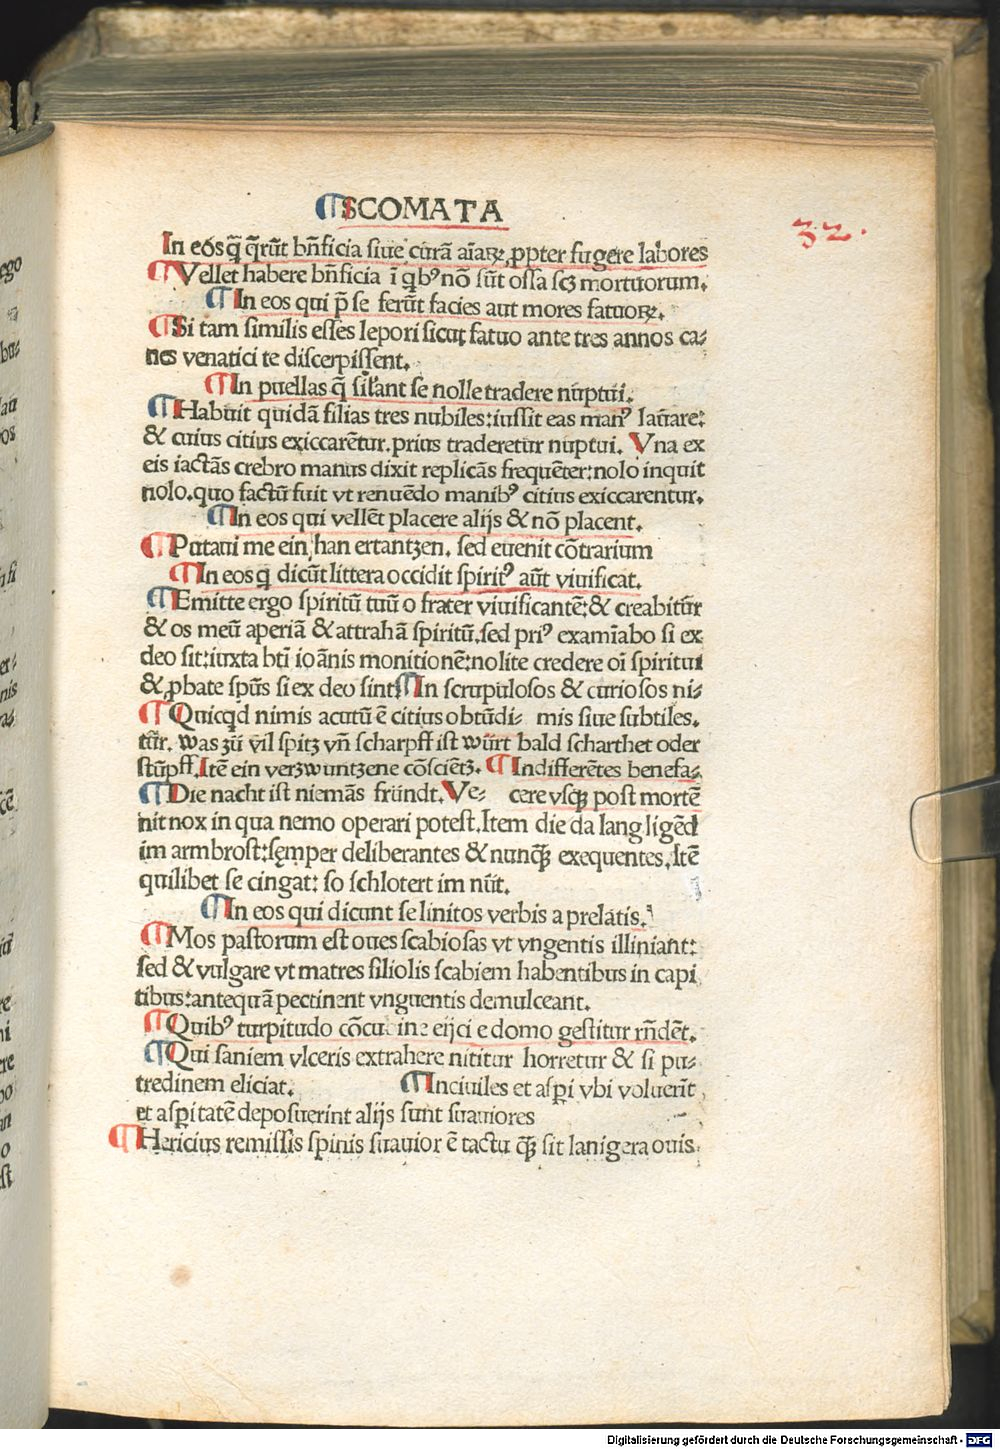 ¶SCOMATA
32.
In eos q̄ q̄rūt bn̄ficia siue curā aīaꝝ ꝓpter fugere labores
¶Vellet habere bn̄ficia ī qbꝰ nō sūt ossa scꝫ mortuorum.
¶In eos qui p̄ se ferūt facies aut mores fatuoꝝ.
¶Si tam similis esses lepori sicut fatuo ante tres annos ca⸗
nes venatici te discerpissent.
¶In puellas q̄ sil̄ant se nolle tradere nuptui.
¶Habuit quidā filias tres nubiles:iussit eas manꝰ lauare:
& cuius citius exiccarētur.prius traderetur nuptui. Vna ex
eis iactās crebro manus dixit replicās frequēter:nolo inquit
nolo.quo factū fuit vt renuēdo manibꝰ citius exiccarentur.
¶In eos qui vellēt placere alijs & nō placent.
¶Putaui me ein han ertantzen. sed euenit cōtrarium
¶In eos q̄ dicūt littera occidit spiritꝰ aūt viuificat.
¶Emitte ergo spiritū tuū o frater viuificantē:& creabitur
& os meū aperiā & attrahā spiritū.sed priꝰ examīabo si ex
deo sit:iuxta bti ioānis monitionē:nolite credere oi spiritui
& ꝓbate spūs si ex deo sint ¶In scrupulosos & curiosos ni⸗
¶Quicqd nimis acutū ē citius obtūdi⸗ mis siue subtiles.
tūr. was zū vil spitz vn̄ scharpff ist würt bald scharthet oder
stūpff.Itē ein verzwuntzene cōsciētz. ¶Indifferētes benefa⸗
¶Die nacht ist niemās fründt.Ve⸗ cere vsqꝫ post mortē
nit nox in qua nemo operari potest.Item die da lang ligēd
im armbrost:semper deliberantes & nunqꝫ exequentes.Itē
quilibet se cingat: so schlotert im nūt.
¶In eos qui dicunt se linitos verbis a prelatis.
¶Mos pastorum est oues scabiosas vt vngentis illiniant:
sed & vulgare vt matres filiolis scabiem habentibus in capi
tibus:antequā pectinent vnguentis demulceant.
¶Quibꝰ turpitudo cōcu ine eijci e domo gestitur rn̄dēt.
¶Qui saniem vlceris extrahere nititur horretur & si pu⸗
tredinem eliciat. ¶Inciuiles et aspi vbi voluerīt
et aspitatē deposuerint alijs sunt suauiores
¶Hericius remissis spinis suauior ē tactu qꝫ sit lanigera ouis
Digitalisierung gefördert durch die Deutsche Forschungsgemeinschaft - DFG